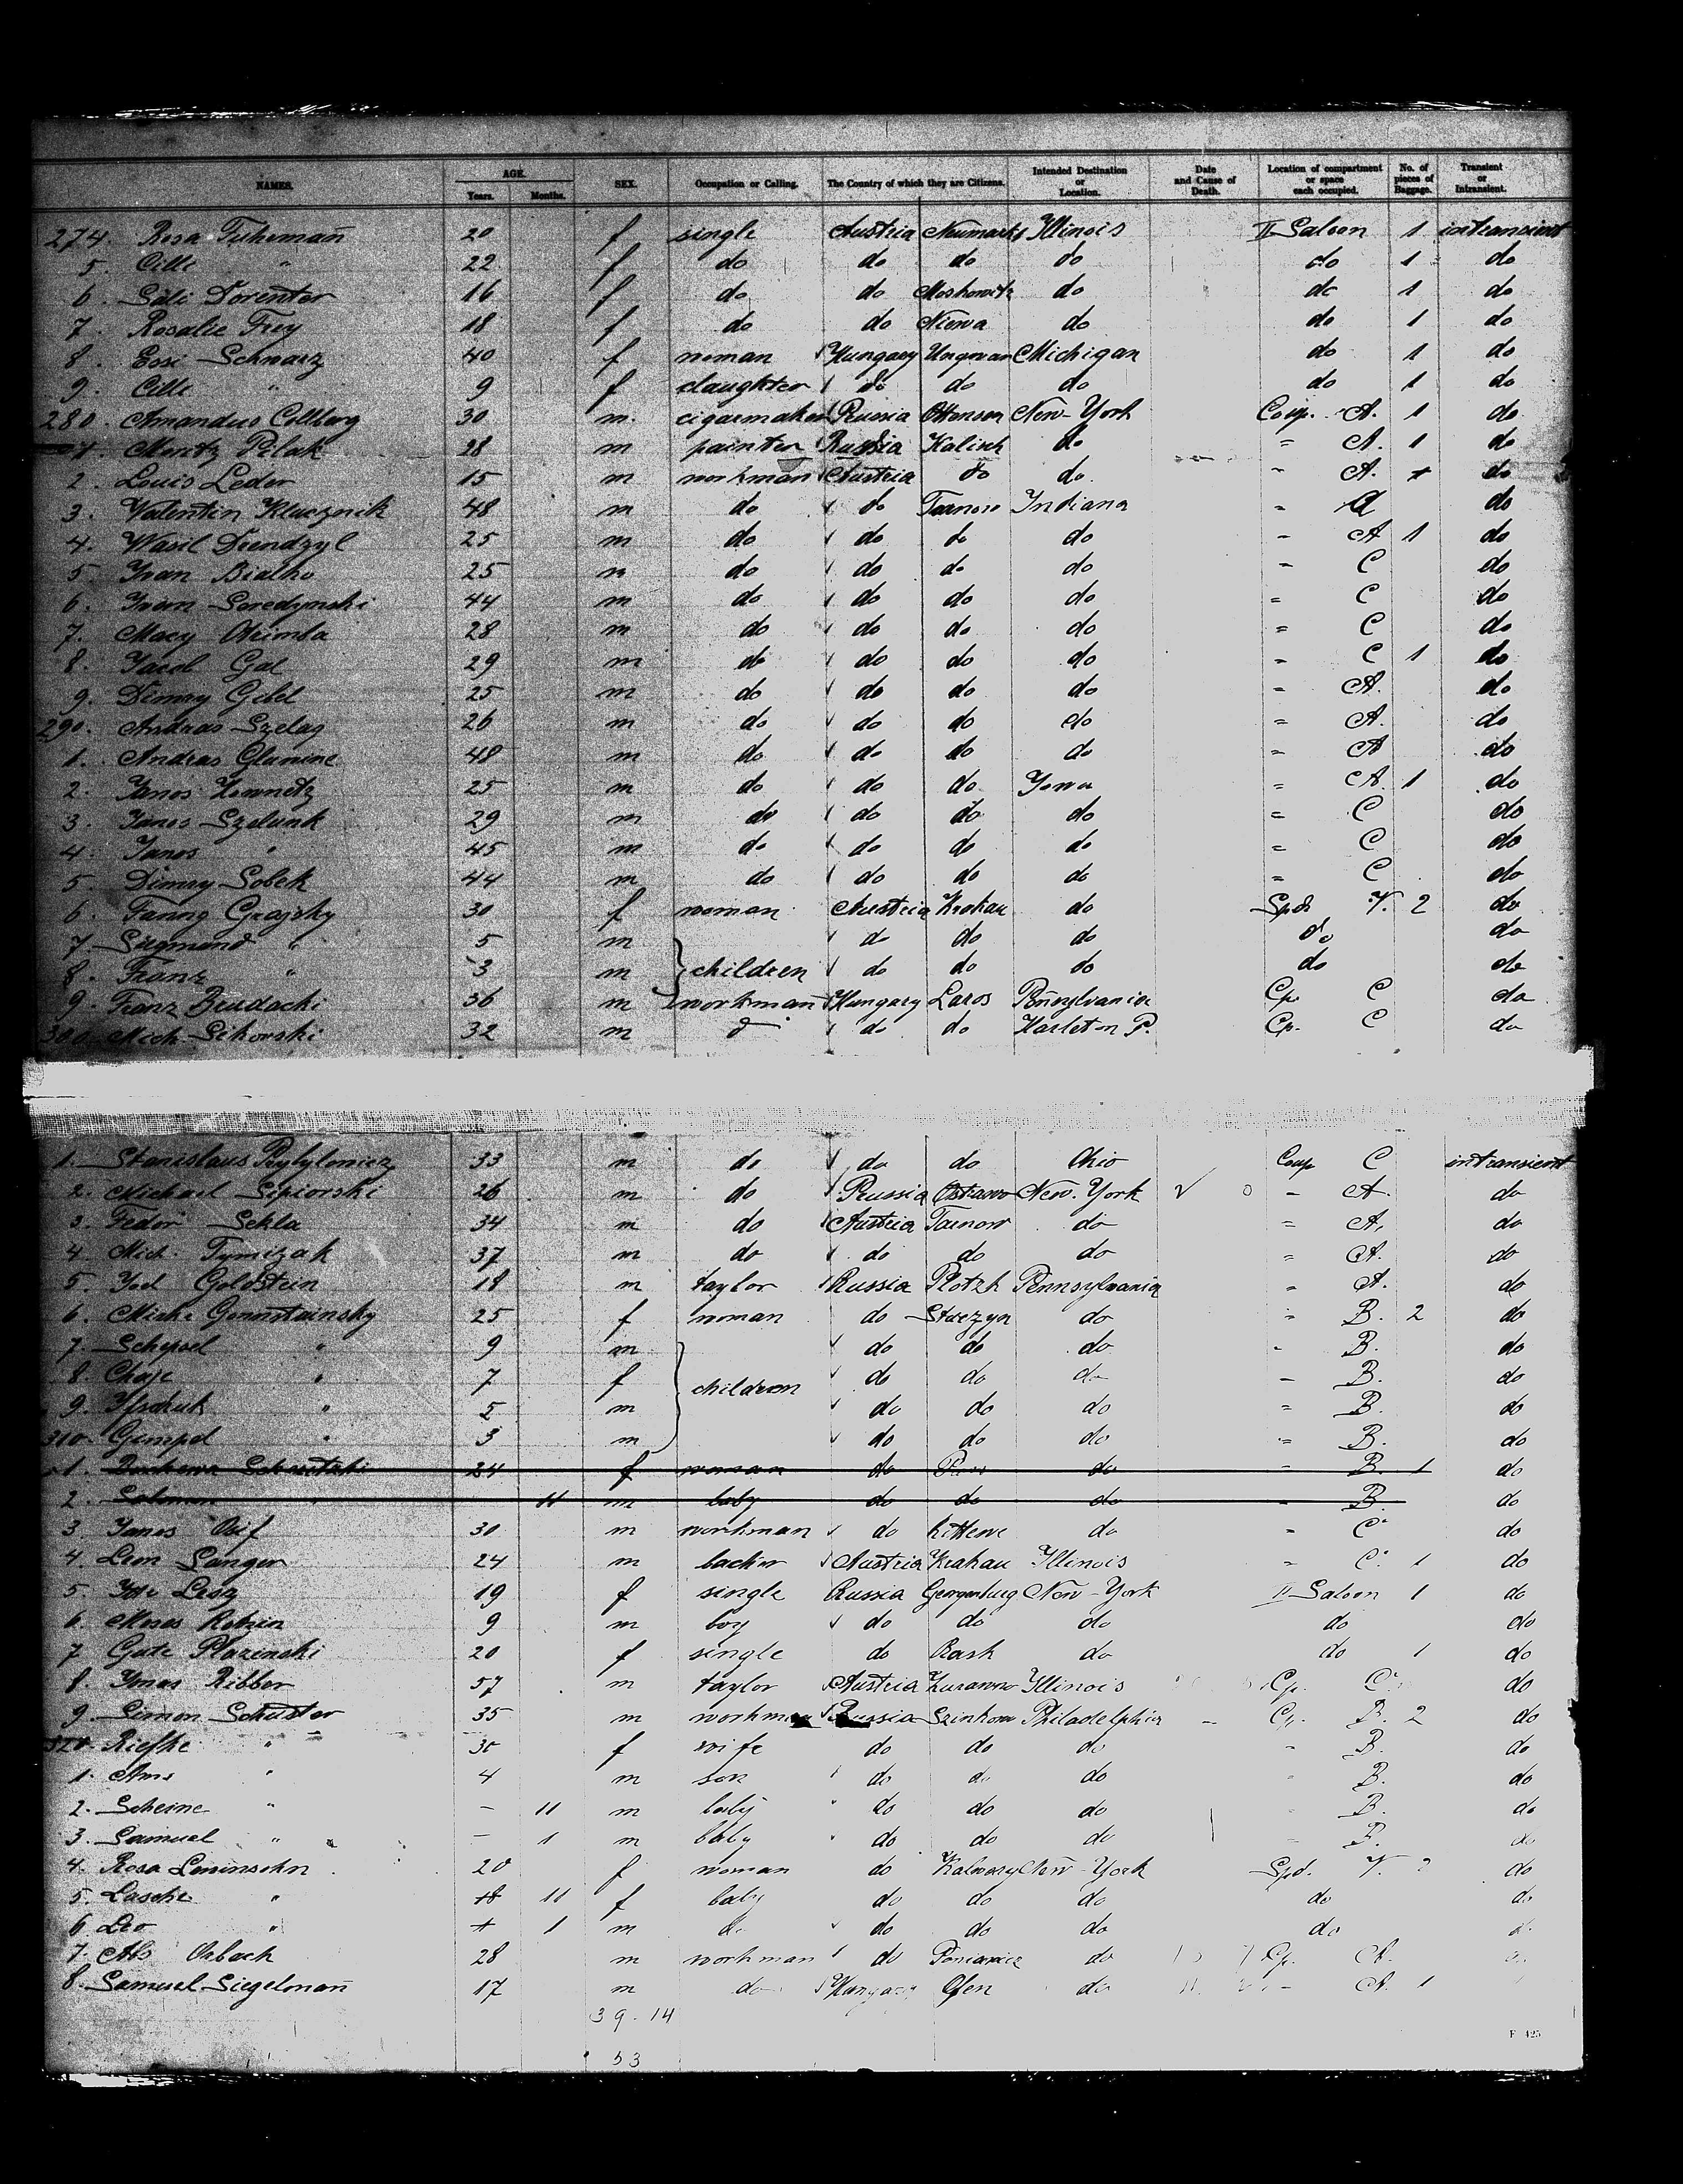 NAMES. AGE. Years. Months. SEX. Occupation or Calling. The Country of which they are Citizens. Intended Destination or Location. Date and Cause of Death. Location of compartment or space each occupied. No. of pieces of Baggage. Transient or Intransient.
274. Rosa Fuhrmañ 20 f single Austria Neumarkt Illinois II Saloon 1 intransient
5. Cilli " 22 f do do do do do 1 do
6. Sali 16 f do do Moskowitz do do 1 do
7. Rosalie Frey 18 f do do Niewa do do 1 do
8. Essi Schwarz 40 f woman Hungary Ungwar Michigan do 1 do
9. Cilli " 9 f daughter do do do do 1 do
280. Amandus Collberg 30 m. cigarmaker Russia Ottensen New-York Coup. A. 1 do
Moritz Pelak 28 m painter Russia Kalisch do " A. 1 do
2. Louis Leder 15 m workman Austria do do. " A. do
3. Valentin Klucznik 48 m do do Tarnow Indiana " A do
4. Wasil Dzendzyl 25 m do do do do " A 1 do
5. Ivan Bialko 25 m do do do do " C do
6. Iwan Seredynski 44 m do do do do " C do
7. Macy 28 m do do do do " C do
8. Jacob Gal 29 m do do do do " C 1 do
9. Dimry Gibel 25 m do do do do " A. do
290. Andras Szelag 26 m do do do do " A. do
1. Andras Glanine 48 m do do do do " A do
2. Janos 25 m do do do Iowa " A. 1 do
3. Janos Szelunk 29 m do do do do " C do
4. Janos " 45 m do do do do " C do
5. Dimry Sobek 44 m do do do do " C do
6. Fanny Grajsky 30 f woman Austria Krakau do Spd. V. 2 do
7. Siegmund " 5 m do do do do do
8. Franz " 3 m children do do do do do
9. Franz Brudacki 36 m workman Hungary Laros Peñsylvania Cp. C do
300. Mich. Sikorski 32 m do do Harleton P. Cp. C do
1. Stanislaus 33 m do do do Ohio Coup C intransient
2. Michael Sipiorski 26 m do Russia Ostrowo New-York " A. do
3. Fedor Sekla 34 m do Austria Tarnow do " A. do
4. Mich. Tymizak 37 m do do do do " A. do
5. Joel Goldstein 18 m taylor Russia Plotzk Pennsylvania " A. do
6. 25 f woman do do " B. 2 do
7. Schepsel " 9 m do do do " B. do
8. Chaje " 7 f children do do do " B. do
9. " 5 m do do do " B. do
310. Gimpel " 3 m do do do " B. do
1. 24 f woman do do " B. 1 do
2. Salomon 11 m baby do do do B. do
3. Janos 30 m workman do do " C. do
4. Leon Sanger 24 m Austria Krakau Illinois " C. 1 do
5. 19 f single Russia Georgenburg New-York II Saloon 1 do
6. Moses 9 m boy do do do do do
7. Gute Plazinski 20 f single do Rash do do 1 do
8. Ribber 57 m taylor Austria Zurawno Illinois Cp. C. do
9. Simon Schuster 35 m workman Russia Philadelphia Cp. B. 2 do
320. Riefke " 30 f wife do do do " B. do
1. " 4 m son do do do " B. do
2. Scheine " – 11 m baby do do do B. do
3. Samuel " – 1 m baby do do do B. do
4. Rosa Levinsohn 20 f woman do New-York Spd. V. do
5. Lasche " 11 f baby do do do do do
6. Leo " 1 m do do do do do
7. Abr. Orbach 28 m workman do do Cp. A.
8. Samuel Siegelmañ 17 m do Hungary Ofen do " A. 1
39. 14
53
F 425